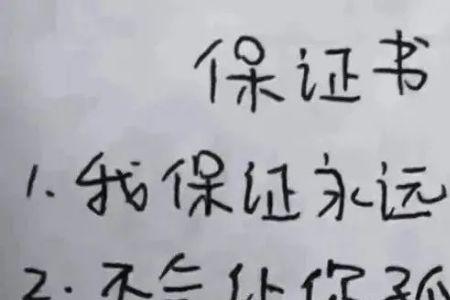 保证书
1. 我保证永远
2. 不会让你孤